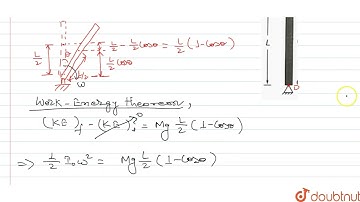 L/2 - L/2 cosθ = L/2 (1-cosθ)
L/2
L/2 cosθ
ω
L
Work-Energy theorem,
(KE)f - (KE)i = Mg L/2 (1-cosθ)
⇒ 1/2 I₀ω² = Mg L/2 (1-cosθ)
doubtnut